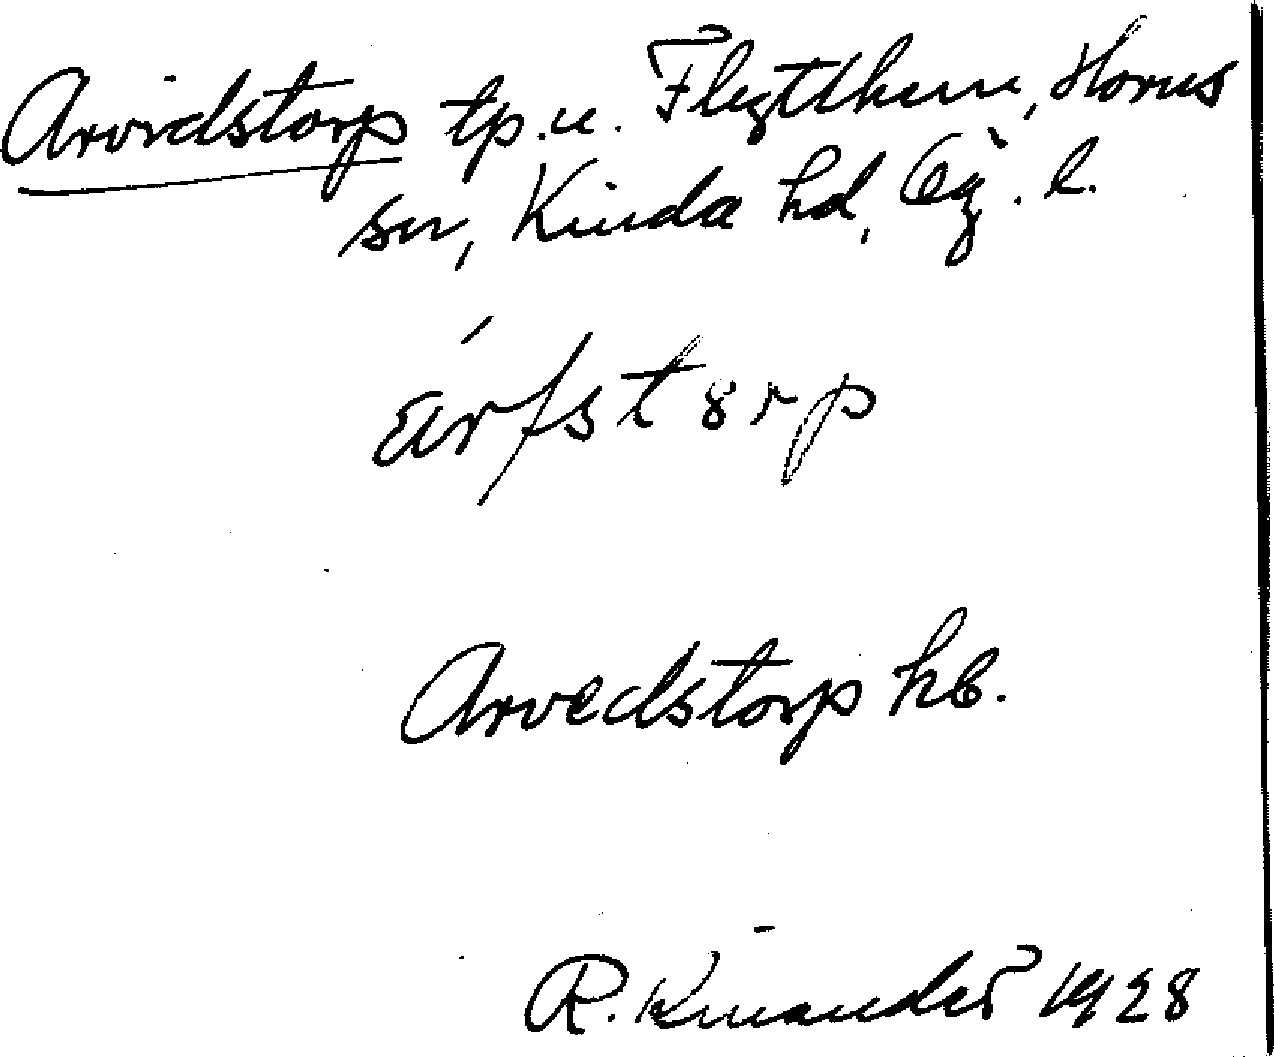 Arvidstorp tp. u. Flytthem, Horns
sn, Kinda hd, Ög. l.
árfstorp
Arvedstorp hb.
R. Kinander 1928